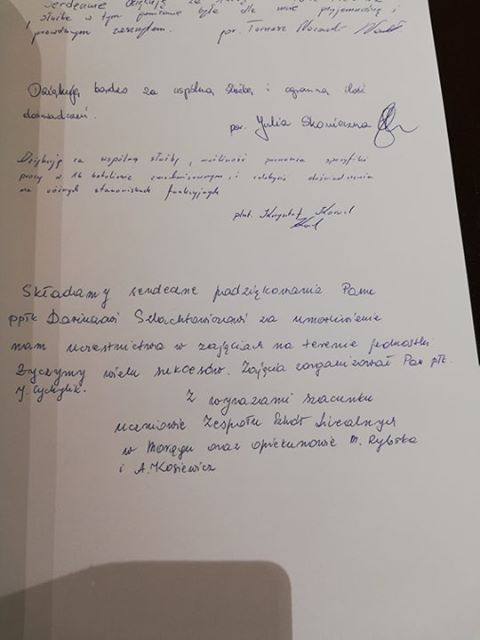 Serdecznie dziękuję za
służba w tym gronie była dla mnie przyjemnością i
prawdziwym zaszczytem. por. Tomasz
Dziękuję bardzo za wspólną służbę i ogromną ilość
doświadczeń.
por. Julia Skonieczna
Dziękuję za wspólną służbę, możliwość poznania specyfiki
pracy w 16 batalionie i zdobycie doświadczenia
na różnych stanowiskach funkcyjnych
plut. Krzysztof Kowal
Składamy serdeczne podziękowania Panu
ppłk Dariuszowi Szlachtowiczowi za umożliwienie
nam uczestnictwa w zajęciach na terenie jednostki
Życzymy wielu sukcesów. Zajęcia zorganizował Pan płk.
Z wyrazami szacunku
uczniowie Zespołu Szkół Licealnych
w Morągu oraz opiekunowie M. Rybska
i A. Kosiewicz